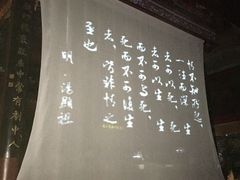 情不知所起,
一往而深
生者可以死,
死可以生
生而不可与死,
死而不可復生
者,皆非情之
至也
明·湯顯祖